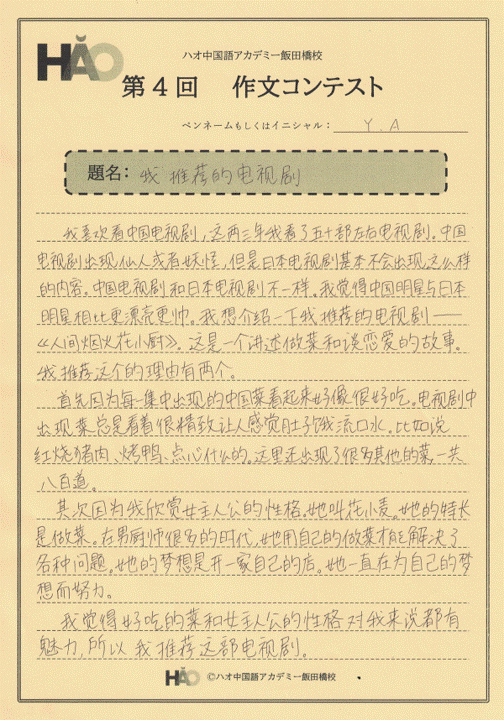 HǍO
ハオ中国語アカデミー飯田橋校
第4回 作文コンテスト
ペンネームもしくはイニシャル： Y.A
題名： 我推荐的电视剧
我喜欢看中国电视剧，这两三年我看了五十部左右电视剧。中国
电视剧出现仙人或者妖怪，但是日本电视剧基本不会出现这么样
的内容。中国电视剧和日本电视剧不一样。我觉得中国明星与日本
明星相比更漂亮更帅。我想介绍一下我推荐的电视剧——
《人间烟火花小厨》。这是一个讲述做菜和谈恋爱的故事。
我推荐这个的理由有两个。
首先因为每一集中出现的中国菜看起来好像很好吃。电视剧中
出现菜总是看着很精致让人感觉肚子饿流口水。比如说
红烧猪肉、烤鸭、点心什么的。这里还出现了很多其他的菜，一共
八百道。
其次因为我欣赏女主人公的性格。她叫花小麦。她的特长
是做菜。在男厨师很多的时代，她用自己的做菜才能解决了
各种问题。她的梦想是开一家自己的店。她一直在为自己的梦
想而努力。
我觉得好吃的菜和女主人公的性格对我来说都有
魅力，所以我推荐这部电视剧。
HǍO ©ハオ中国語アカデミー飯田橋校